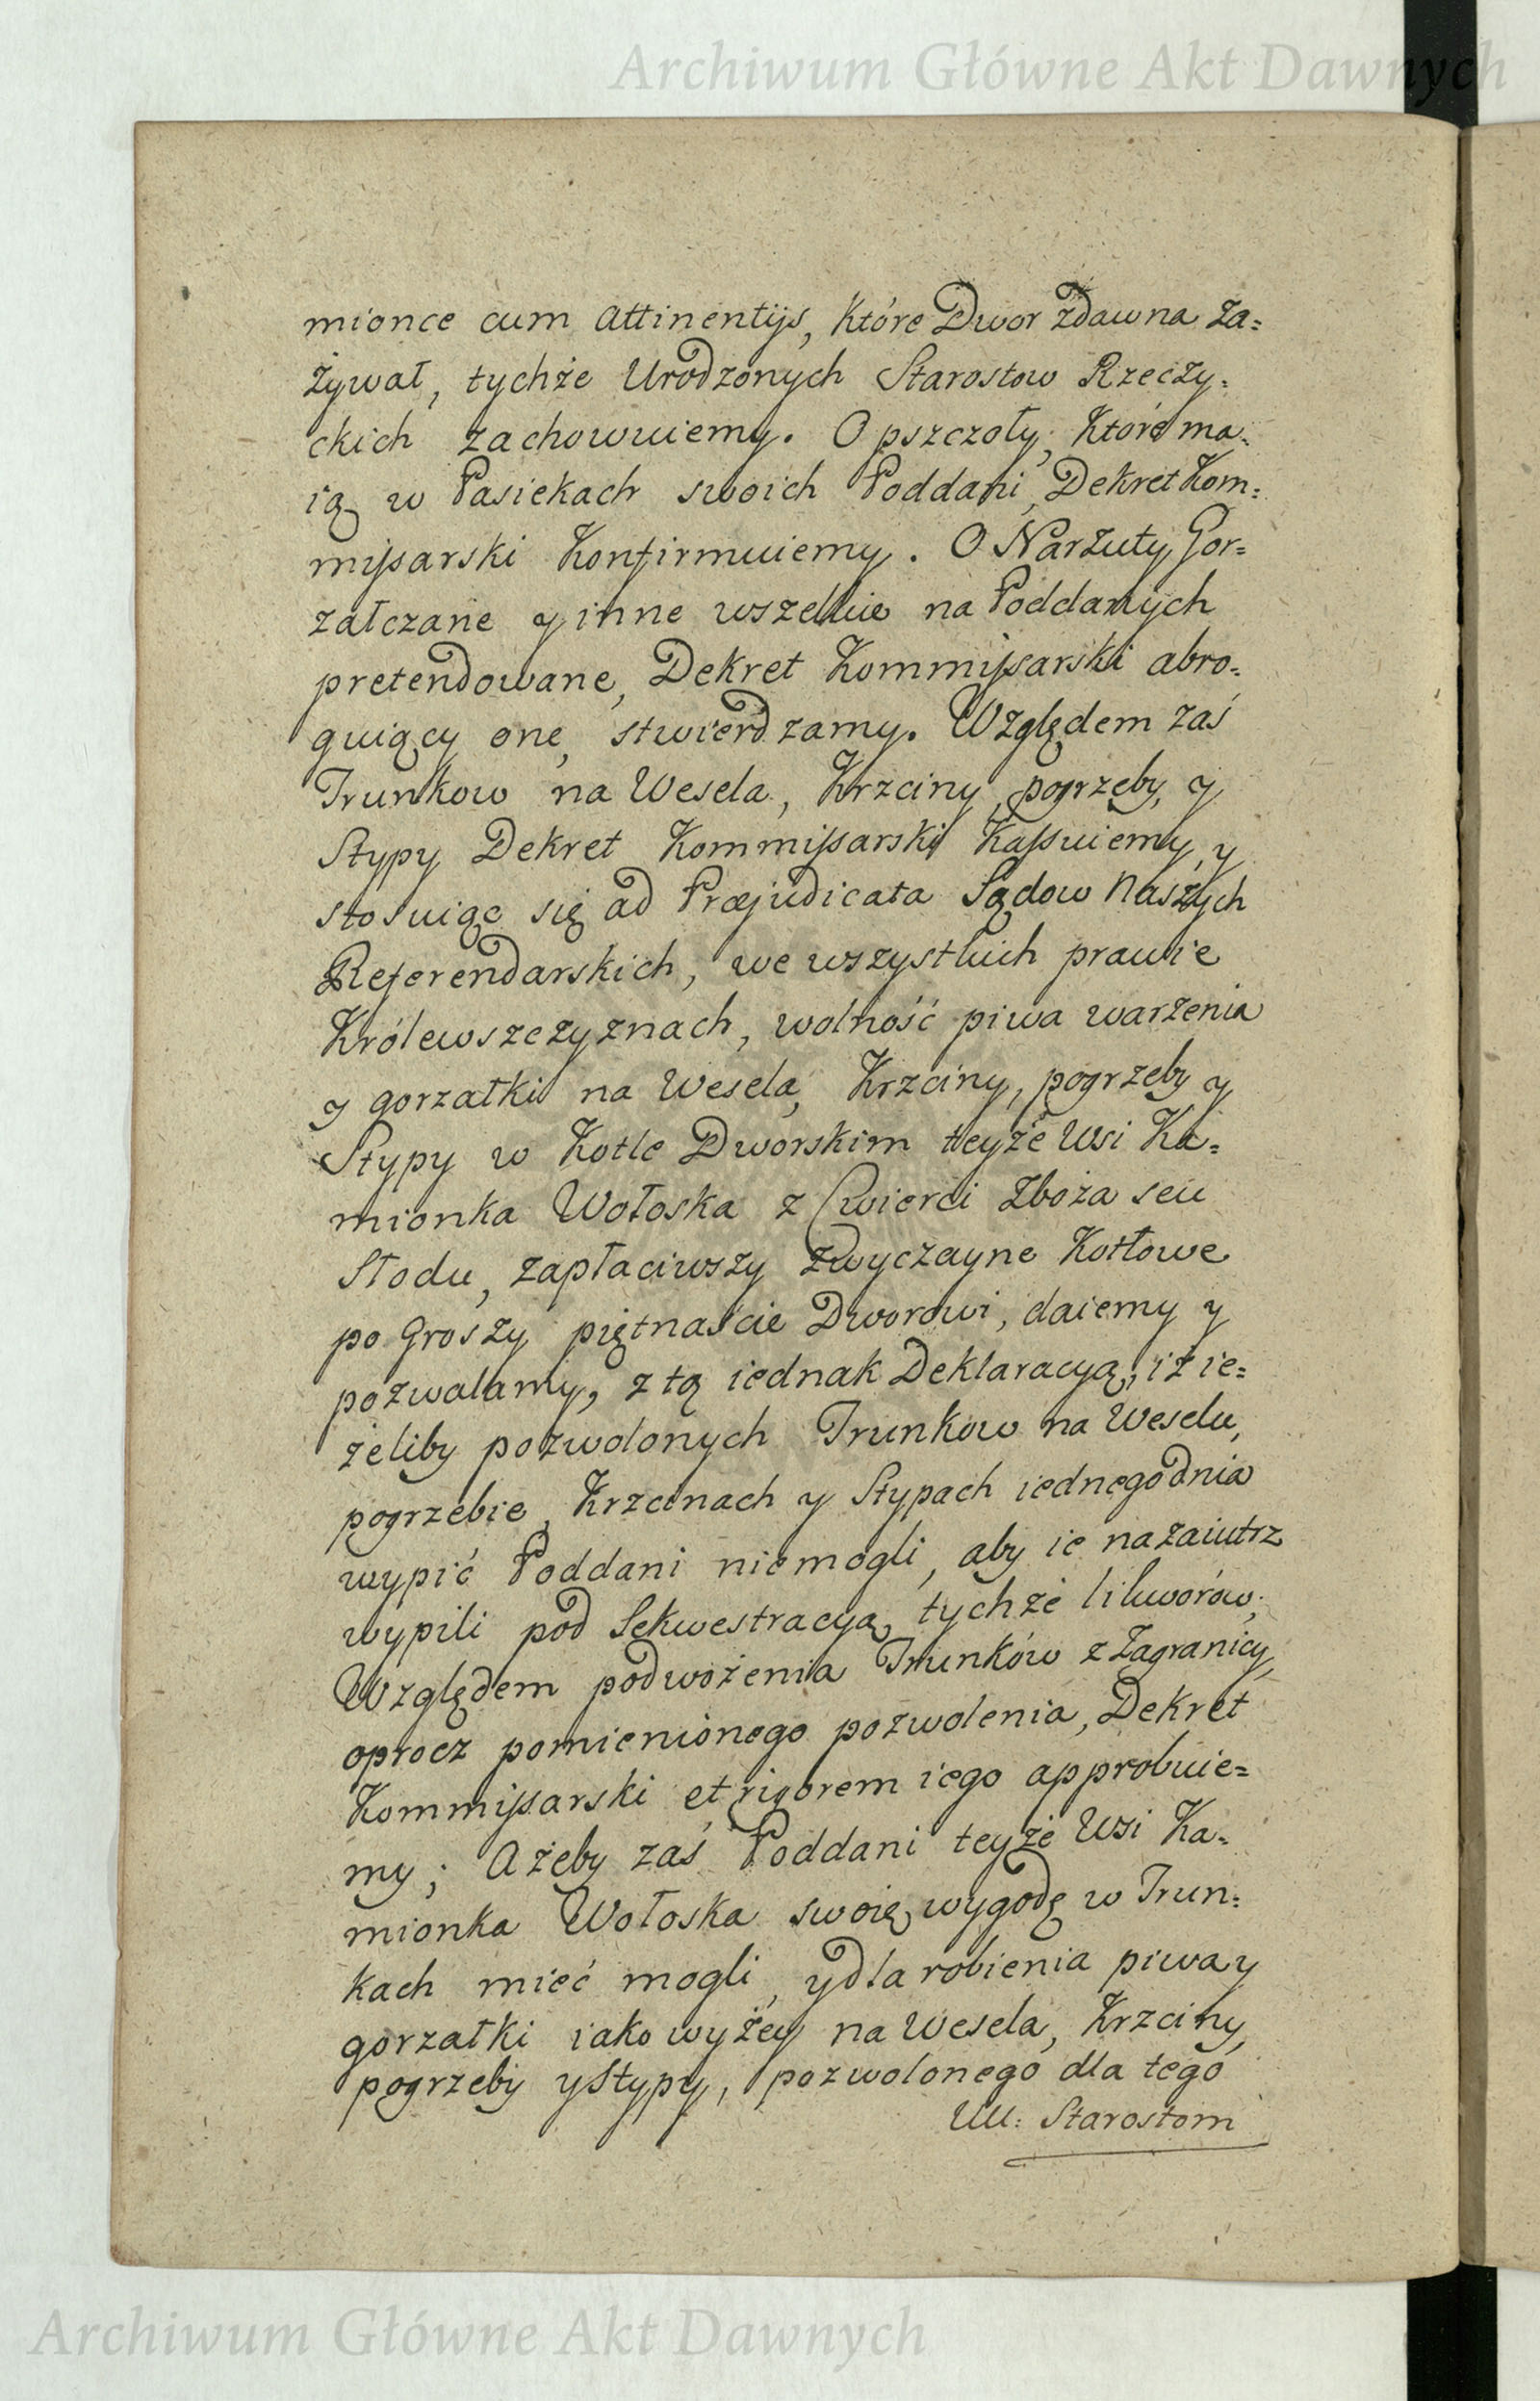 Archiwum Główne Akt Dawnych
mionce cum attinentijs, które Dwor zdawna za=
żywał, tychże Urodzonych Starostow Rzeczy=
ckich zachowuiemy. O pszczoły, które ma=
ią w Pasiekach swoich Poddani, Dekret Kom=
missarski Konfirmuiemy. O Narzuty Gor=
załczane y inne wszelkie na Poddanych
pretendowane, Dekret Kommissarski abro=
guiący one, stwierdzamy. Względem zaś
Trunkow na Wesela, Krzciny, pogrzeby, y
Stypy Dekret Kommissarski Kassuiemy, y
stosuiąc się ad Præjudicata Sądow Naszych
Referendarskich, we wszystkich prawie
Królewszczyznach, wolność piwa warzenia
y gorzałki na Wesela, Krzciny, pogrzeby y
Stypy w Kotle Dworskim teyże Wsi Ka=
mionka Wołoska z Cwierci Zboża seu
Słodu, zapłaciwszy zwyczayne Kotłowe
po Groszy piętnaście Dworowi, daiemy y
pozwalamy, z tą iednak Deklaracyą, iż ie=
żeliby pozwolonych Trunkow na Weselu,
pogrzebie, Krzcinach y Stypach iednego dnia
wypić Poddani niemogli, aby ie nazaiutrz
wypili pod Sekwestracyą tychże likworów;
Względem podwożenia Trunków z Zagranicy,
oprocz pomienionego pozwolenia, Dekret
Kommissarski et rigorem iego approbuie=
my; Ażeby zaś Poddani teyże Wsi Ka=
mionka Wołoska swoię wygodę w Trun=
kach mieć mogli, y dla robienia piwa y
gorzałki iako wyżey na Wesela, Krzciny,
pogrzeby y Stypy, pozwolonego dla tego
UU: Starostom
Archiwum Główne Akt Dawnych